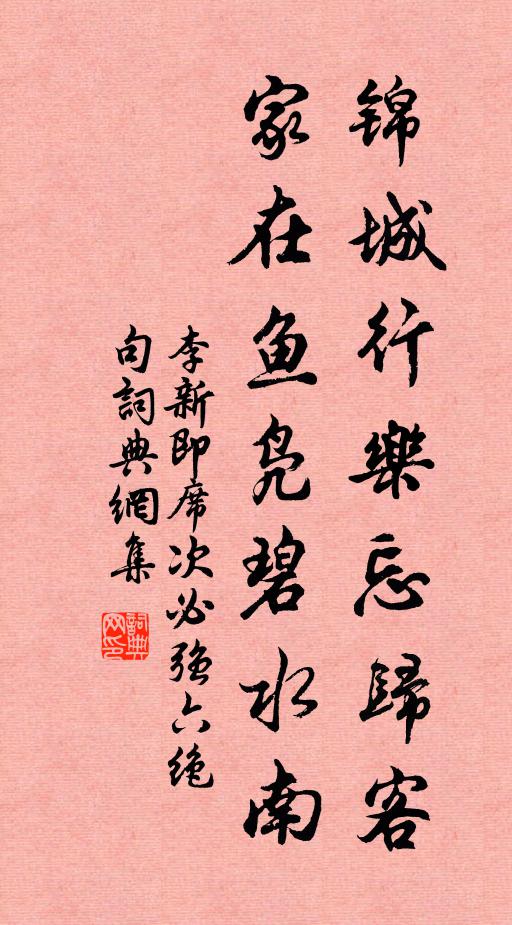 锦城行樂忘歸客
家在鱼凫碧水南
李新即席次必强六绝
句詞典網集
詞典网印